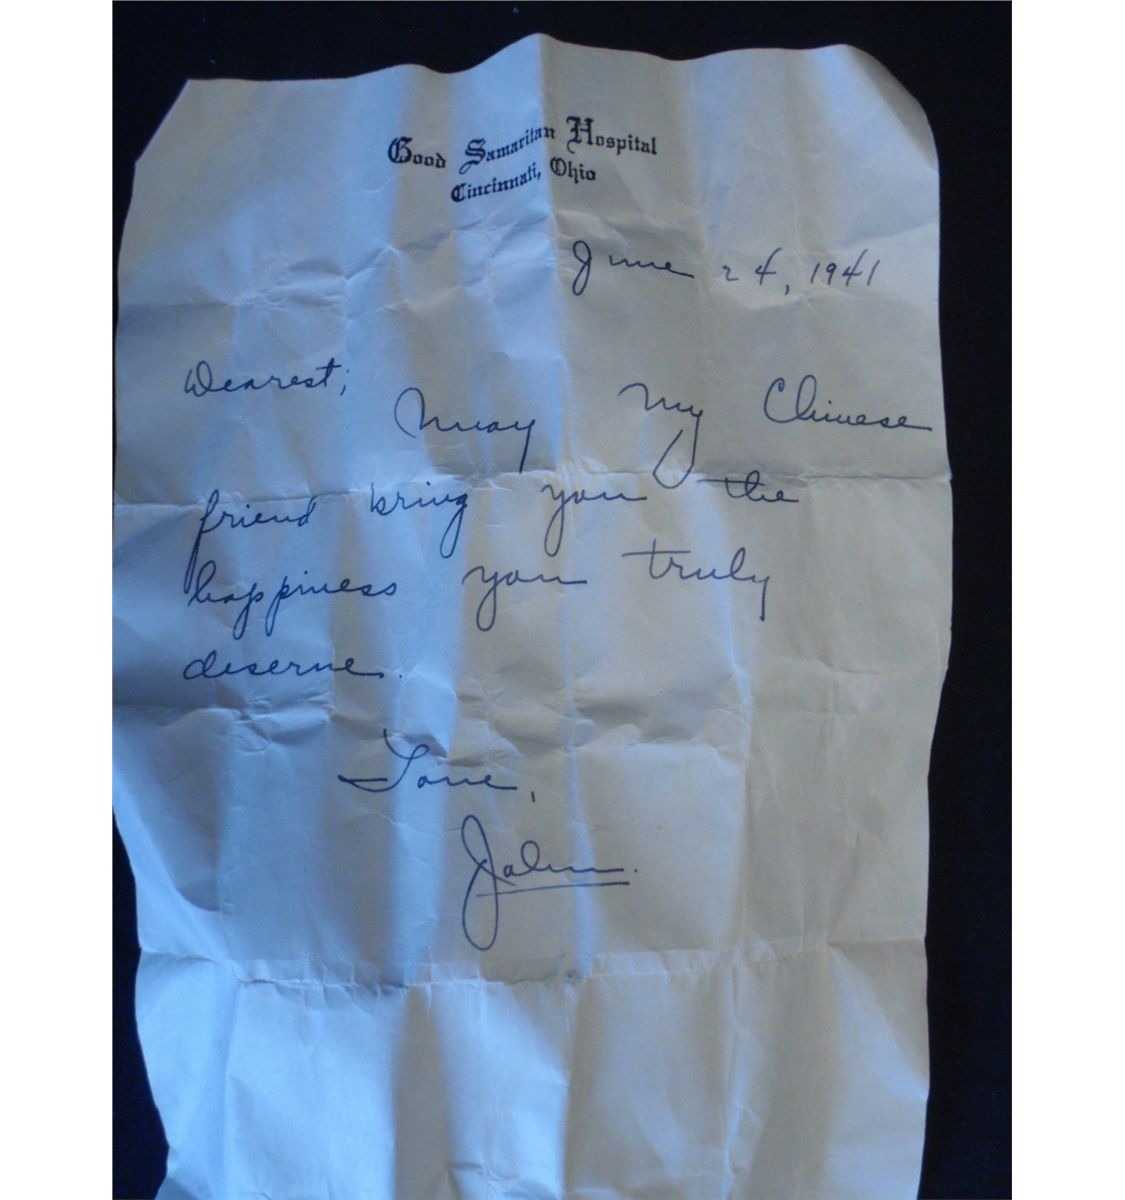 Good Samaritan Hospital
Cincinnati, Ohio
June 24, 1941
Dearest;
May My Chinese
friend bring you the
happiness you truly
deserve.
Love,
John.